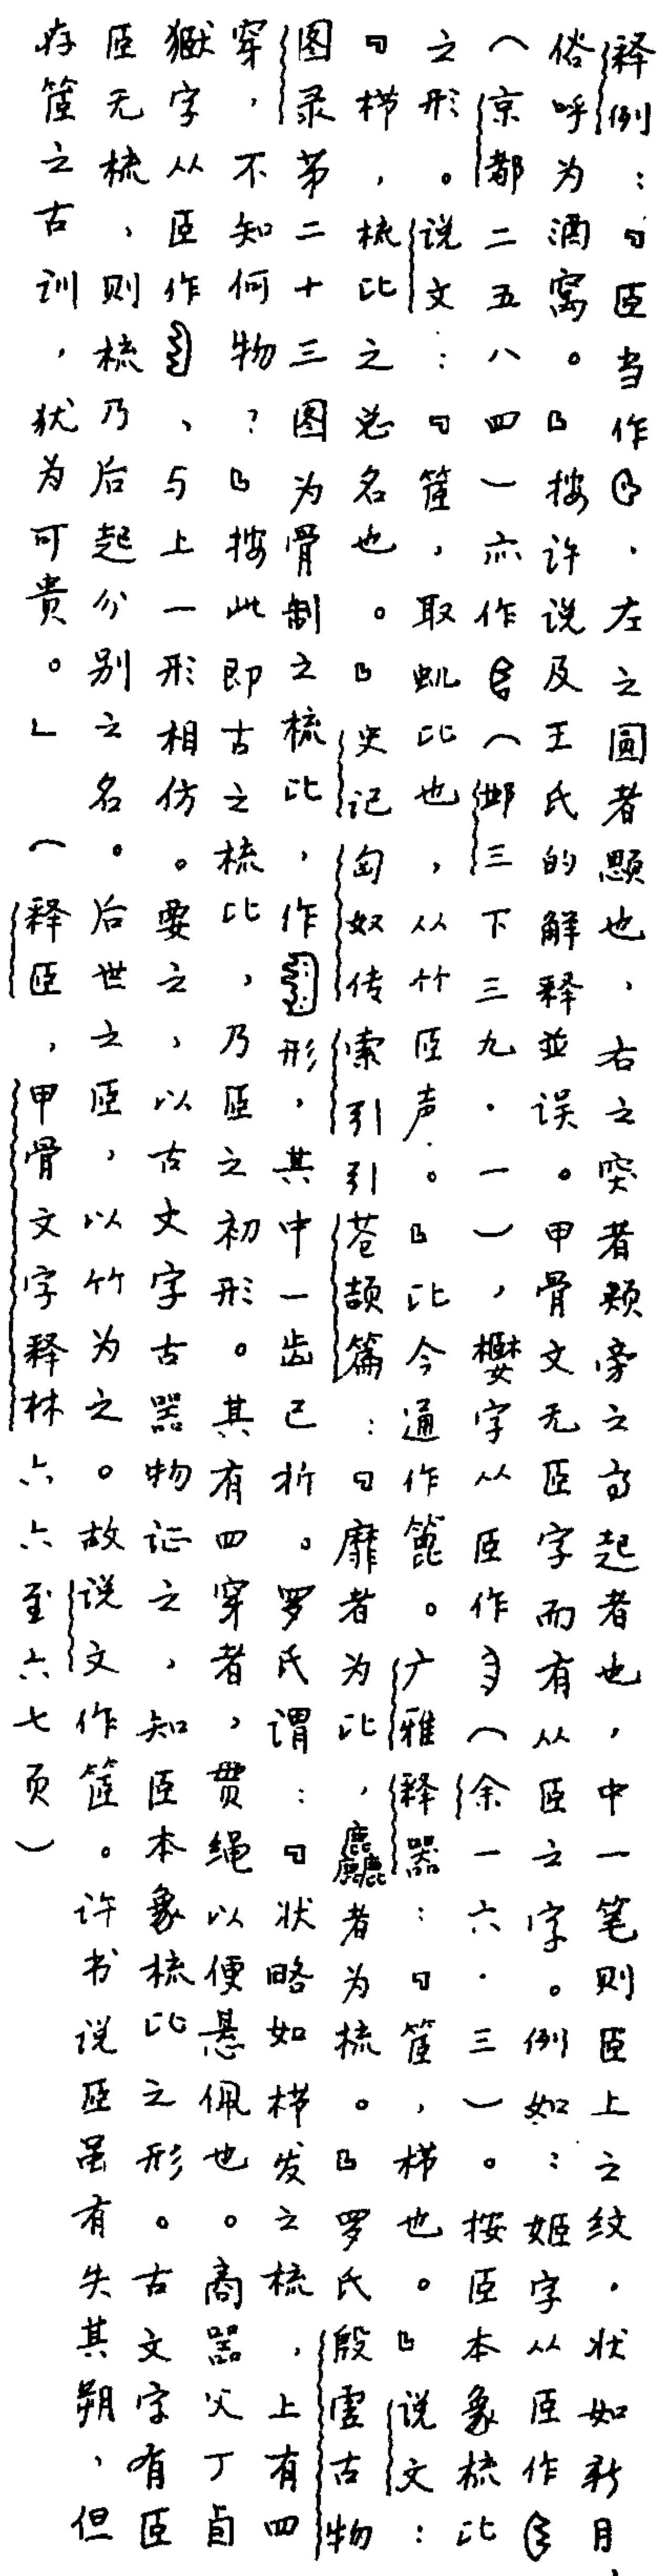 释例：『𦣞当作，左之圆者颐也，右之突者颊旁之高起者也，中一笔则𦣞上之纹，状如新月，
俗呼为酒窝。』按许说及王氏的解释并误。甲骨文无𦣞字而有从𦣞之字。例如：姬字从𦣞作
（京都二五八四）亦作（邺三下三九·一），㜲字从𦣞作（余一六·三）。按𦣞本象梳比
之形。说文：『笸，取虮比也，从竹𦣞声。』比今通作篦。广雅释器：『笸，栉也。』说文：
『栉，梳比之总名也。』史记匈奴传索引引苍颉篇：『靡者为比，麤者为梳。』罗氏殷虚古物
图录第二十三图为骨制之梳比，作形，其中一齿已折。罗氏谓：『状略如栉发之梳，上有四
穿，不知何物？』按此即古之梳比，乃𦣞之初形。其有四穿者，贯绳以便悬佩也。商器父丁卣
狱字从𦣞作，与上一形相仿。要之，以古文字古器物证之，知𦣞本象梳比之形。古文字有𦣞
𦣞无梳，则梳乃后起分别之名。后世之𦣞，以竹为之。故说文作笸。许书说𦣞虽有失其朔，但
存笸之古训，犹为可贵。」（释𦣞，甲骨文字释林六六至六七页）